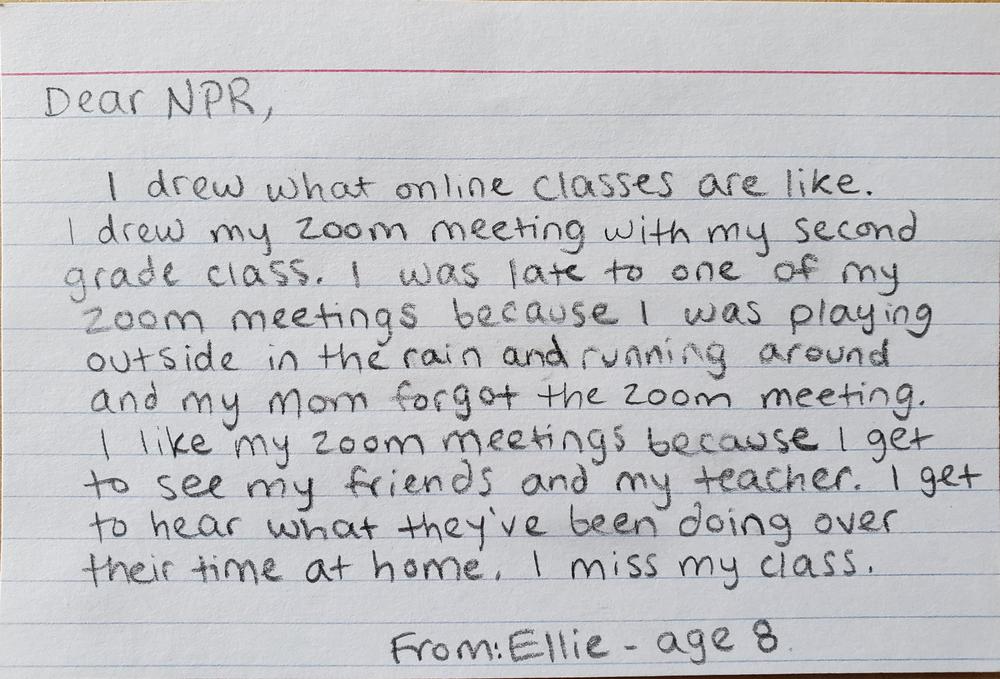 Dear NPR,
I drew what online classes are like.
I drew my zoom meeting with my second
grade class. I was late to one of my
zoom meetings because I was playing
outside in the rain and running around
and my Mom forgot the zoom meeting.
I like my zoom meetings because I get
to see my friends and my teacher. I get
to hear what they've been doing over
their time at home. I miss my class.
From: Ellie - age 8